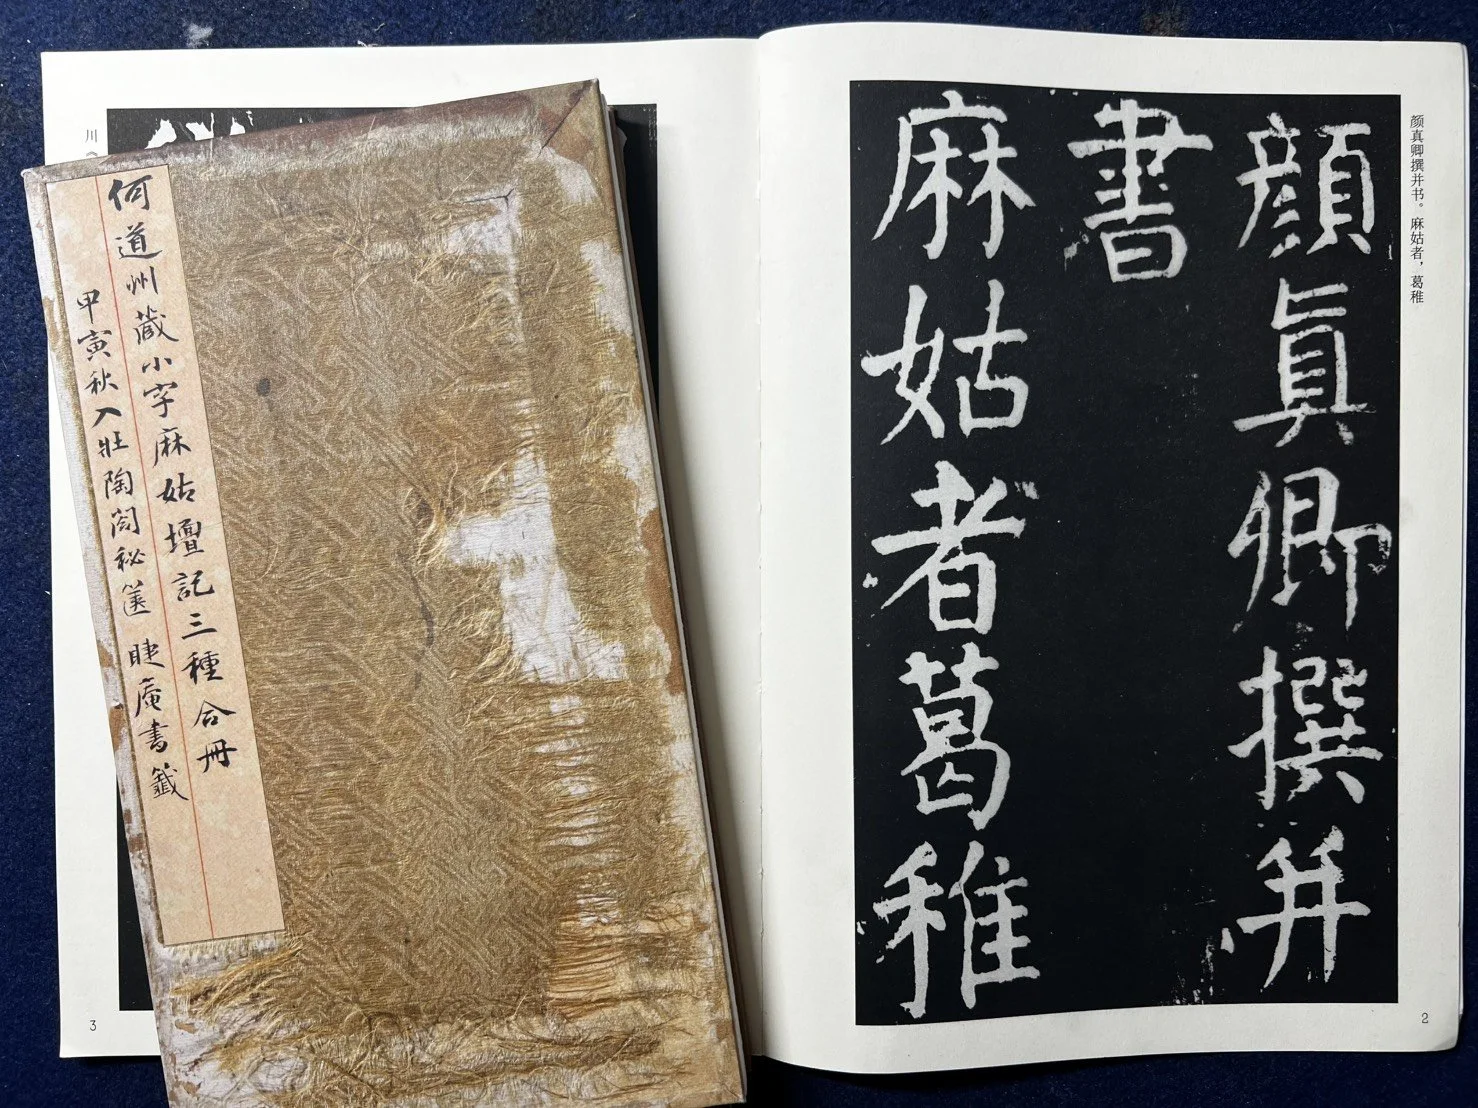 颜真卿撰并书。麻姑者，葛稚
顔眞卿撰并
書
麻姑者葛稚
2
川
何道州藏小字麻姑壇記三種合冊
甲寅秋入壯陶閣秘篋 睫庵書籤
3